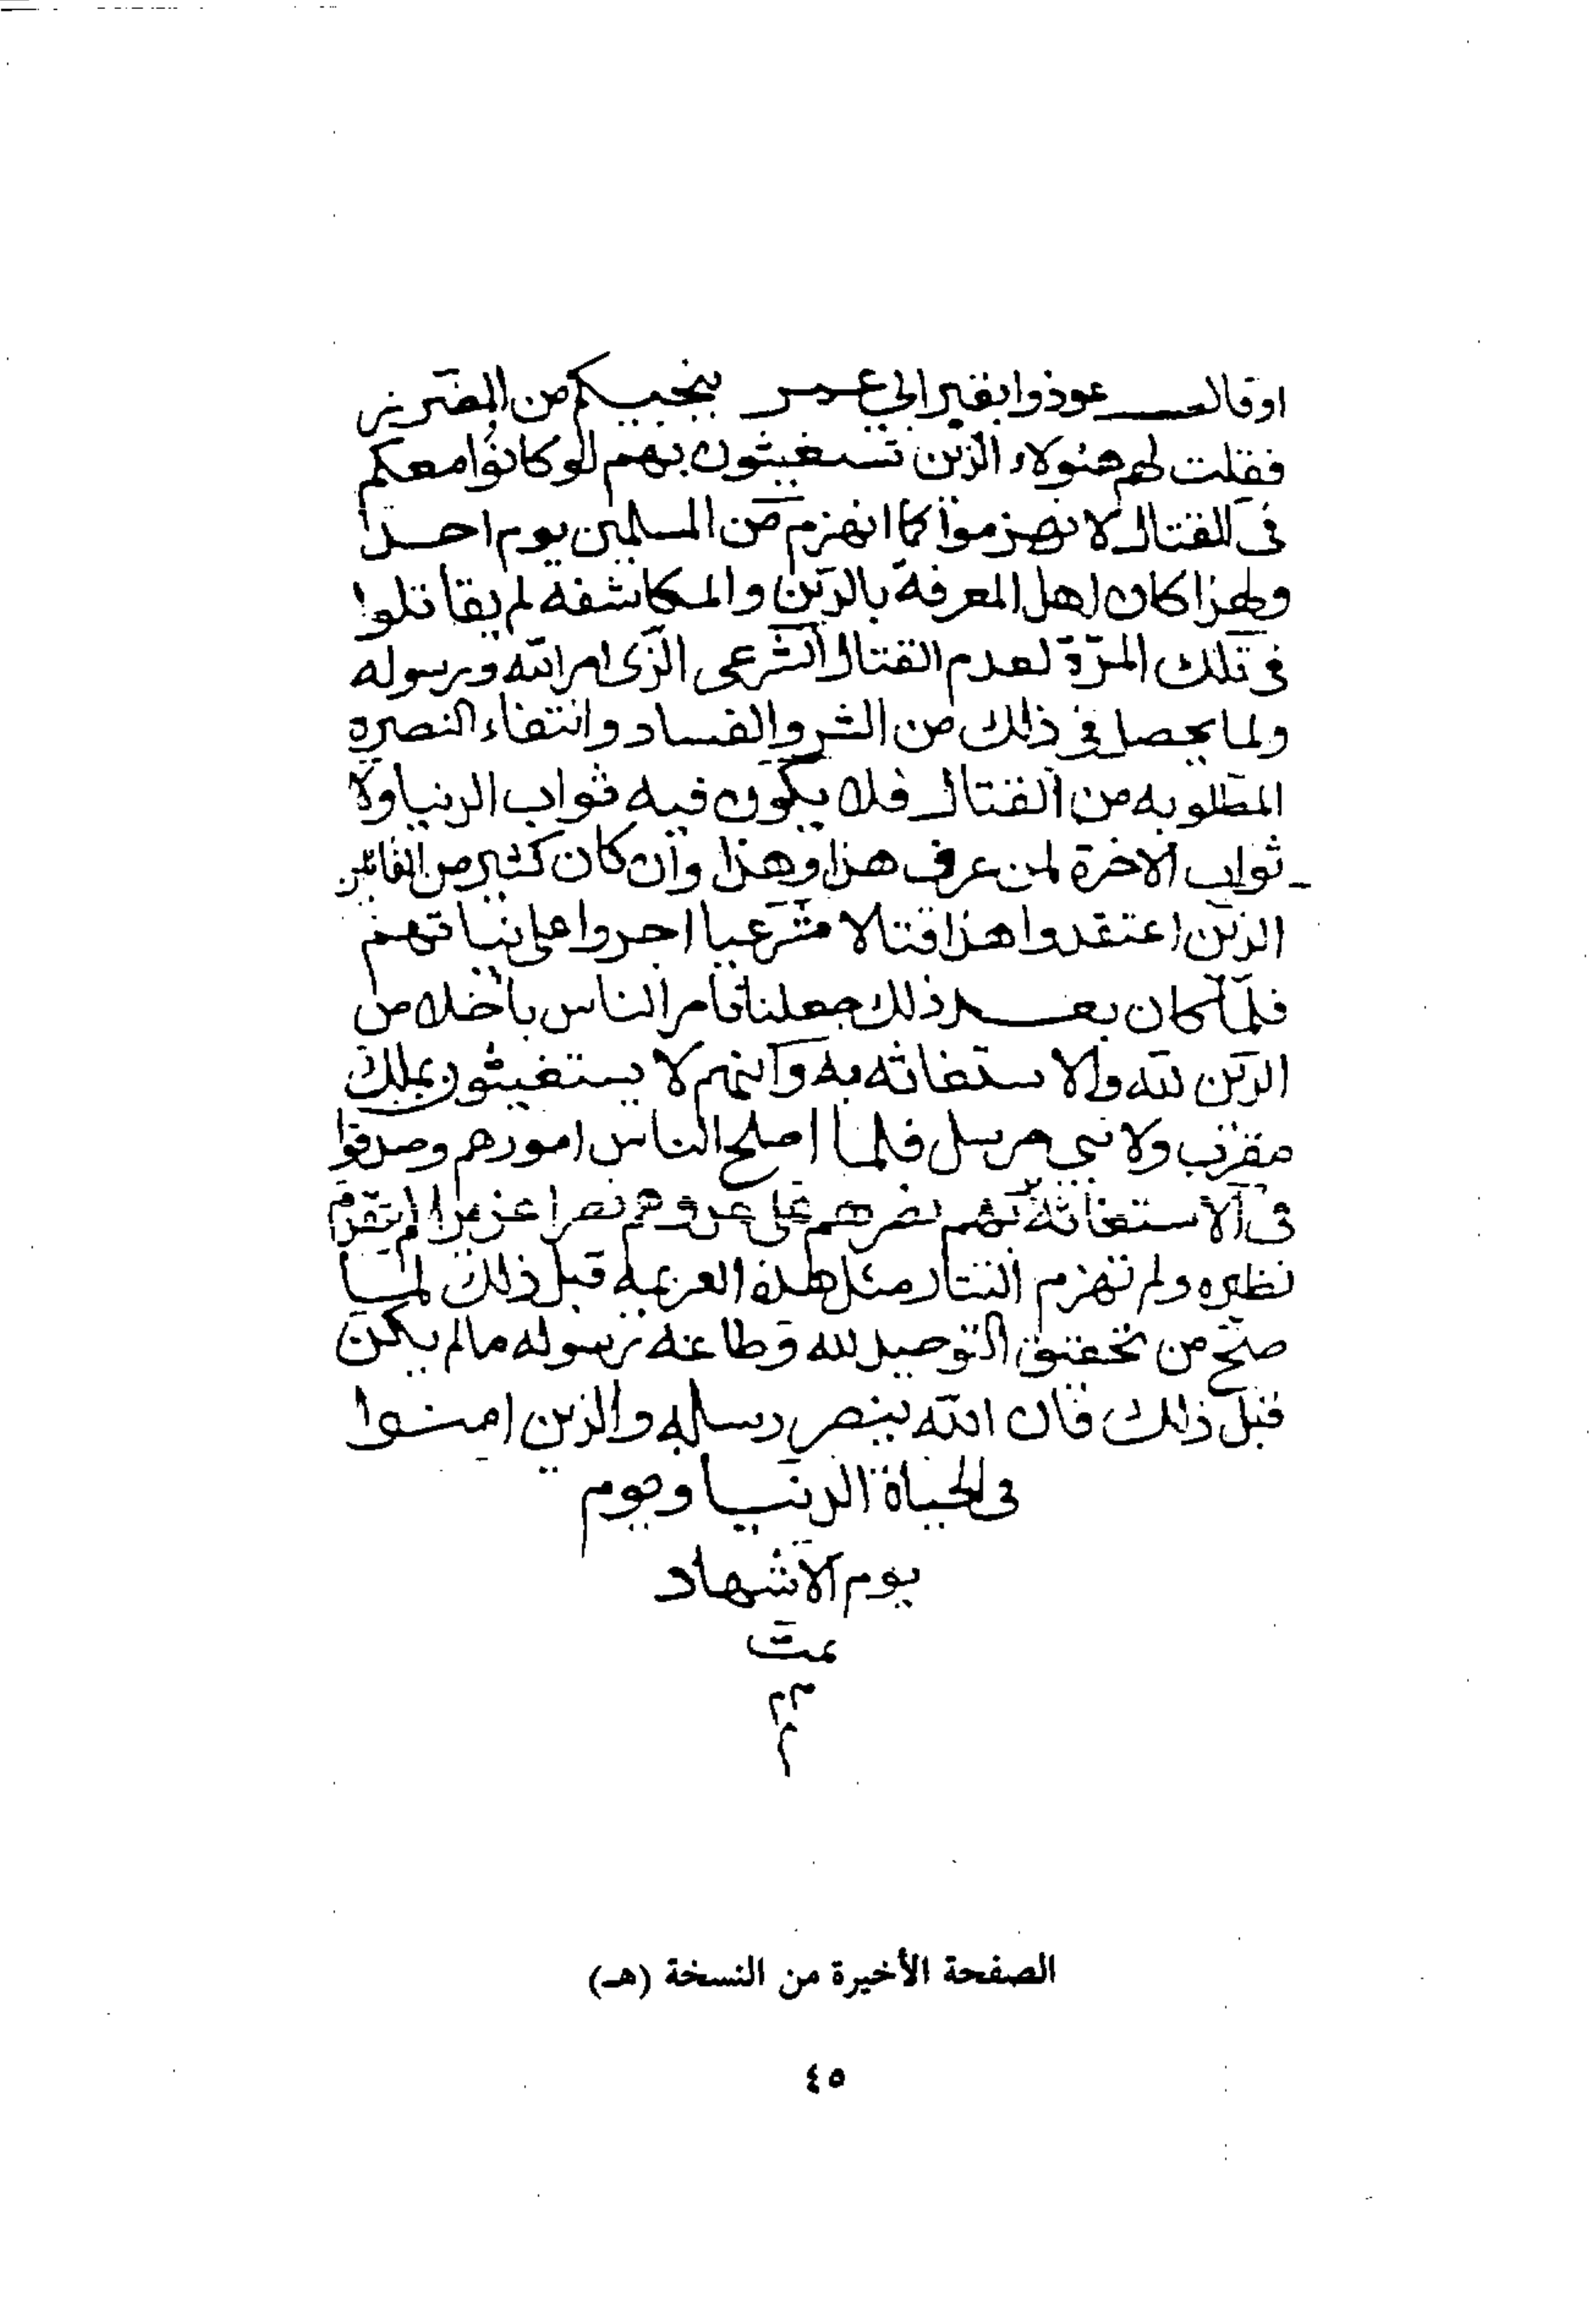 او قال عوذوا بقبر ابي عمر ينجيكم من الضرر
فقلت لهم هؤلاء الذين تستغيثون بهم لو كانوا معكم
في القتال لانهزموا كما انهزم من المسلمين يوم احد
ولهذا كان اهل المعرفة بالدين والمكاشفة لم يقاتلوا
في تلك المرة لعدم القتال الشرعى الذى امر الله ورسوله
ولما يحصل في ذلك من الشر والفساد وانتفاء النصره
المطلوبه من القتال فلا يكون فيه ثواب الدنيا ولا
ثواب الاخرة لمن عرف هذا وهذا وان كان كثير من القائلين
الذين اعتقدوا هذا قتالا شرعيا اجروا على نياتهم
فلما كان بعد ذلك جعلنا نامر الناس باخلاص
الدين لله والاستغاثه به وانهم لا يستغيثون بملك
مقرب ولا نبي مرسل فلما اصلح الناس امورهم وصدقوا
في الاستغاثة بربهم نصرهم على عدوهم نصرا عزيزا لم يتقدم
نظيره ولم تهزم التتار مثل هذه العزيمه قبل ذلك لما
صح من تحقيق التوحيد لله وطاعة رسوله مالم يكن
قبل ذلك فان الله ينصر رسله والذين امنوا
في الحياة الدنيا ويوم
يوم الاشهاد
تمت
م م
م
الصفحة الأخيرة من النسخة (هـ)
٤٥